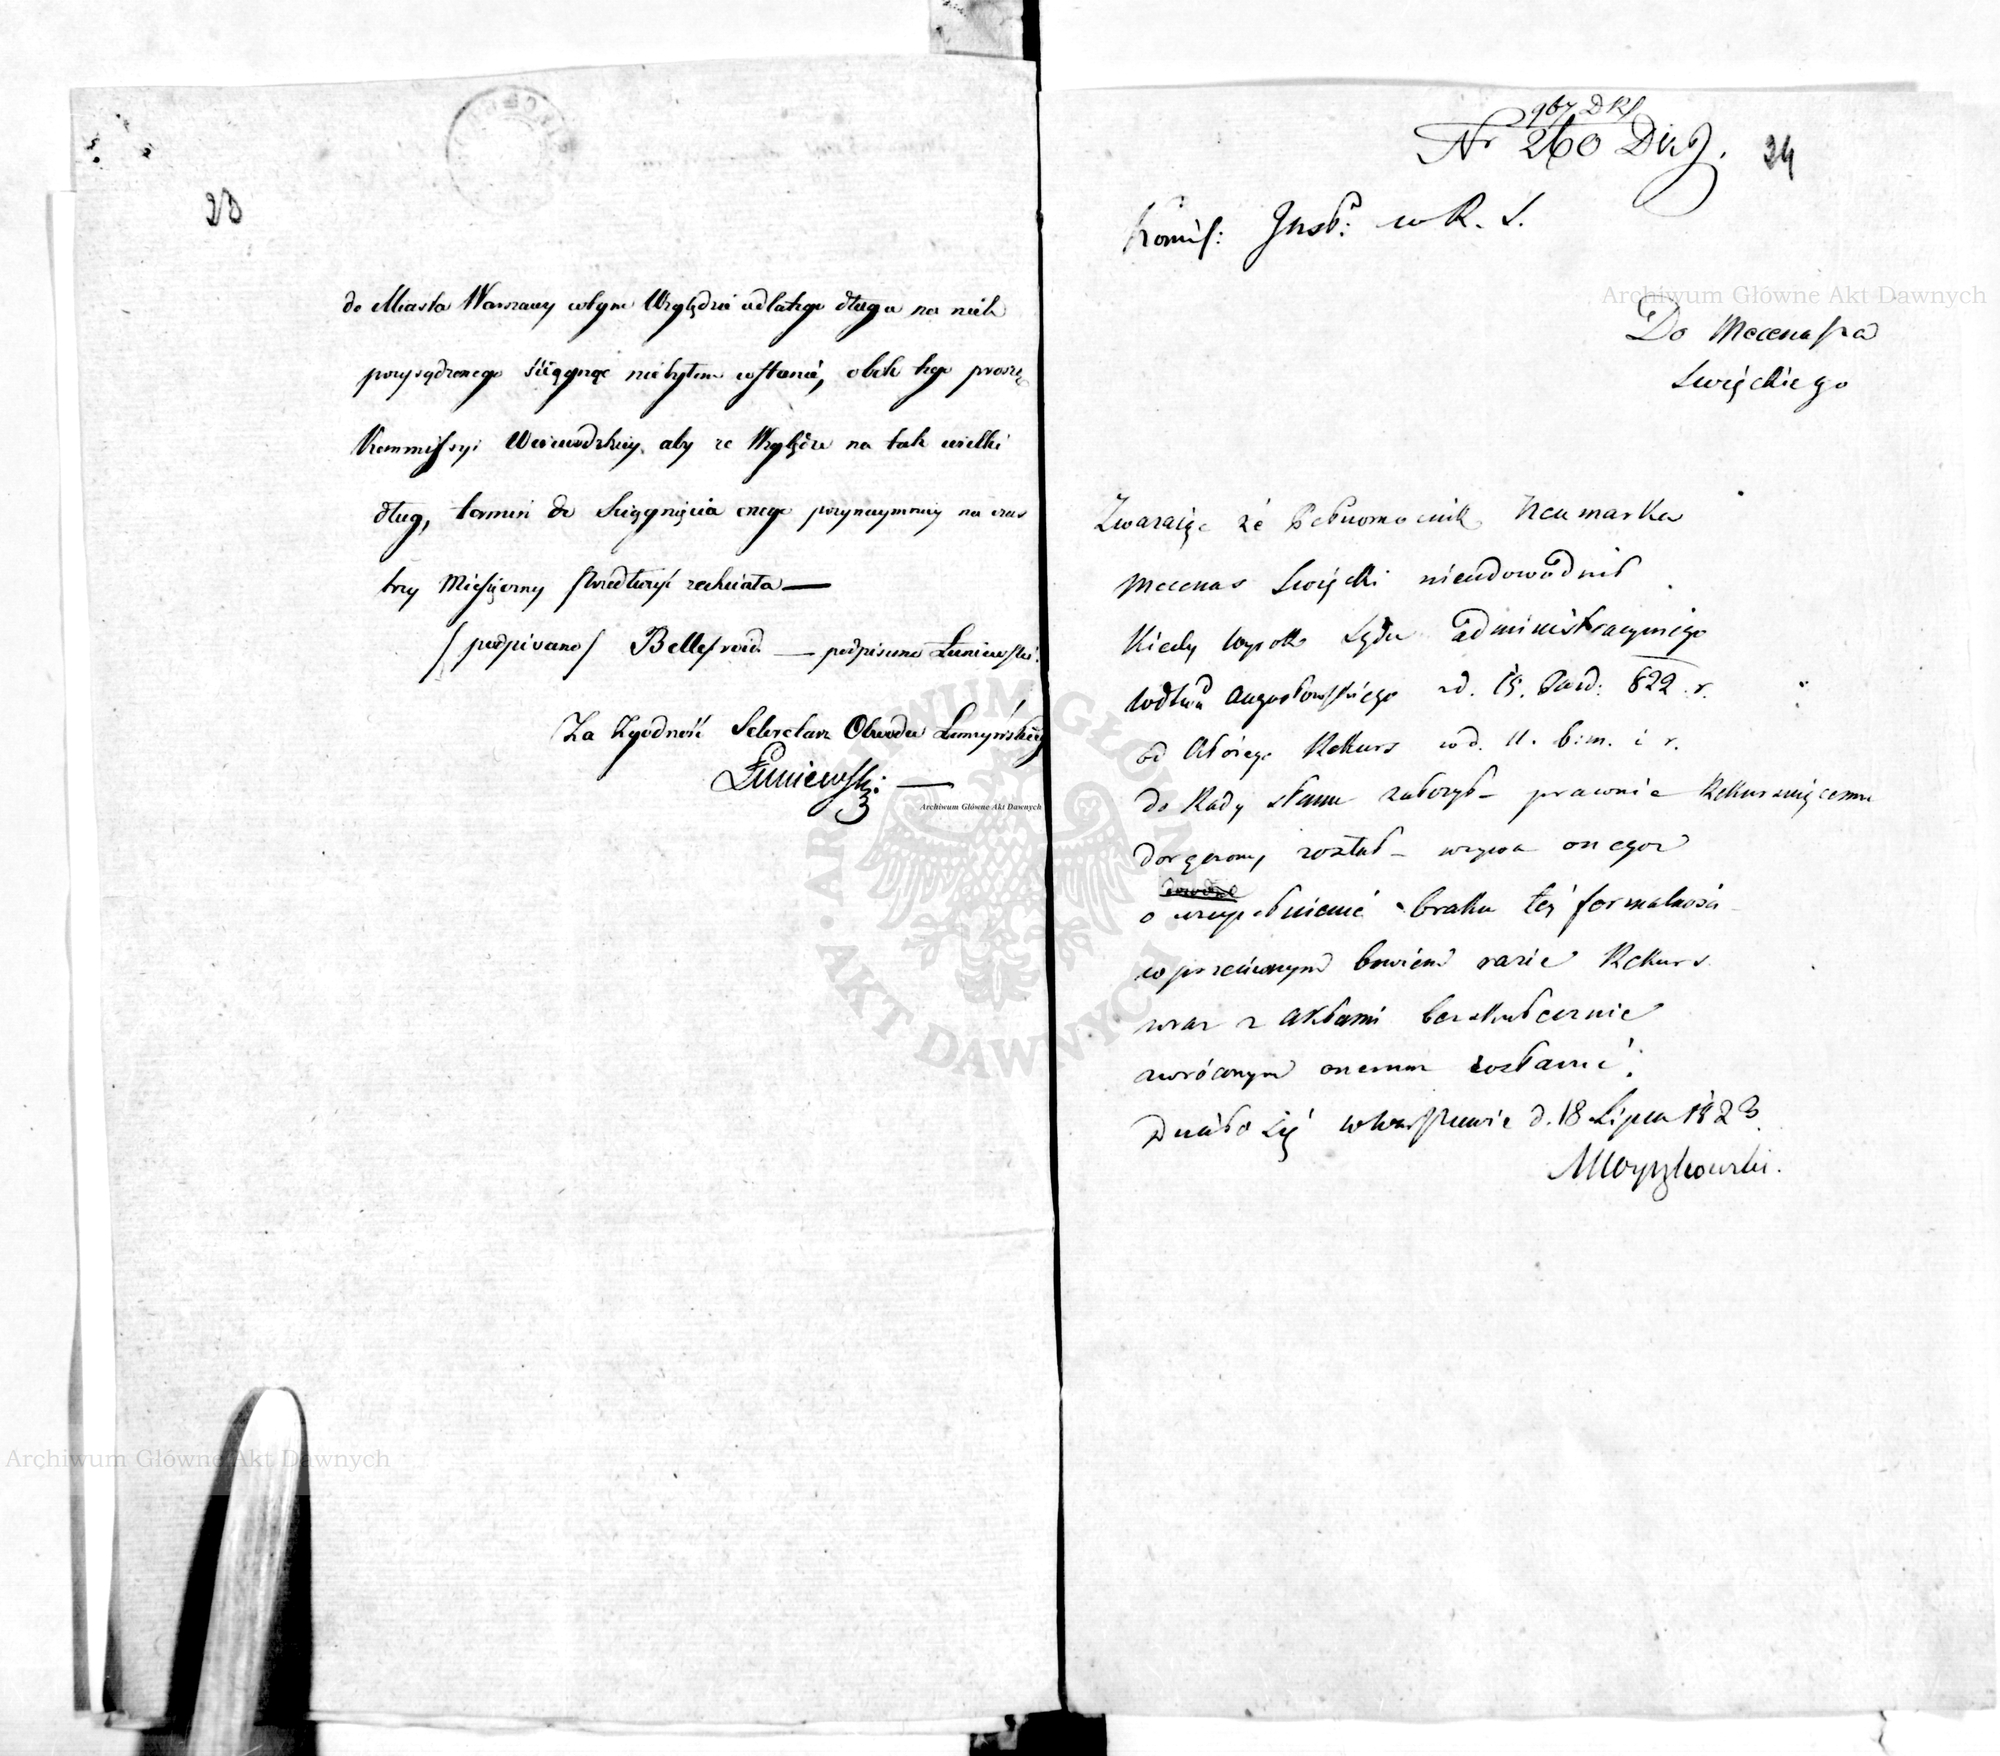 23
do Miasta Warszawy w tym Względzie udałego długu na nich
przysądzonego ściągnąć niebyłem wstanie, obok tego proszę
Kommissyi Woiewodzkiey aby ze Względu na tak wielki
dług, termin do Sciągnięcia onego przynaymniey na czas
trzy Miesięczny
/podpisano/ Bellefroid — podpisano Łuniewski.
Za Zgodność Sekretarz Obwodu Łomżyńskiego
Łuniewski —
967 DKS
Nr 260 Dz. 24
Komiss: Inst: w R. S.
Do Mecenasa
Swięckiego
Zważaiąc że Pełnomocnik Neumarka
Mecenas Swięcki nieudowodnił
kiedy Wyrok Sądu administracyinego
Wdtwa Augustowskiego z d. 15. Paźd: 822 r.
od którego Rekurs w d. 11. b:m. i r.
do Rady Stanu założył – prawnie Rekuruiącemu
doręczony został – wzywa onegoż
o uzupełnienie braku tey formalności –
w przeciwnym bowiem razie Rekurs
wraz z aktami bezskutecznie
zwróconym onemuż zostanie.
Działo się w Warszawie d. 18 Lipca 1823.
MWyszkowski.
Archiwum Główne Akt Dawnych
Archiwum Główne Akt Dawnych
Archiwum Główne Akt Dawnych
ARCHIWUM GŁÓWNE AKT DAWNYCH